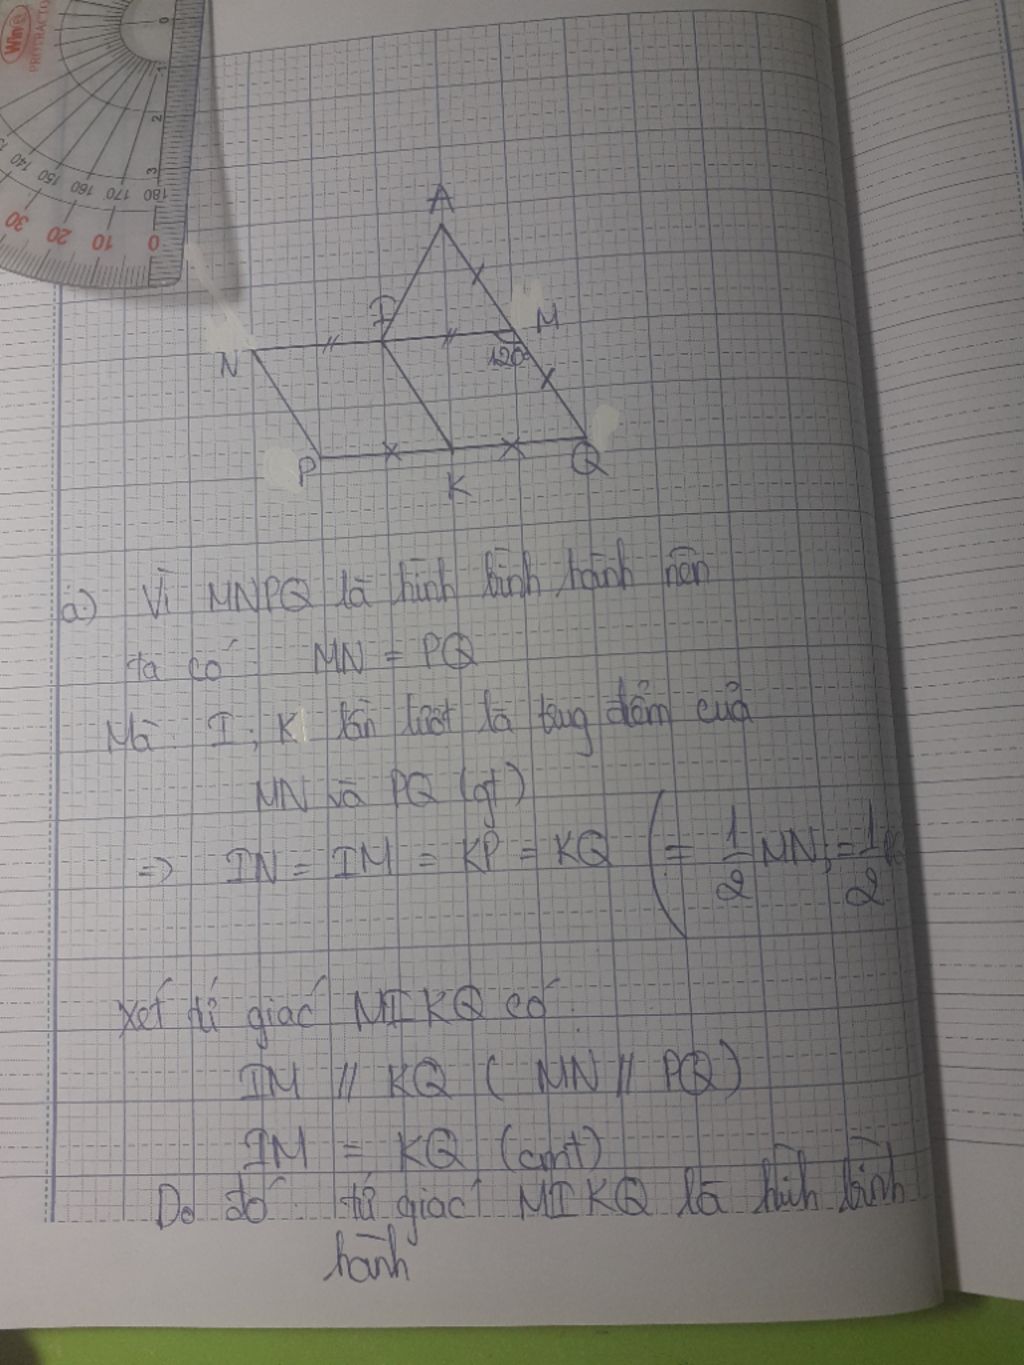 Win®
PROTRACTOR
0
1
2
3
140 150 160 170 180
30 20 10 0
A
I
M
N
120°
P
K
Q
a) Vì MNPQ là hình bình hành nên
ta có MN = PQ
Mà I; K lần lượt là trung điểm của
MN và PQ (gt)
=> IN = IM = KP = KQ ( = 1/2 MN; = 1/2
Xét tứ giác MIKQ có:
IM // KQ ( MN // PQ )
IM = KQ (cmt)
Do đó tứ giác MIKQ là hình bình
hành